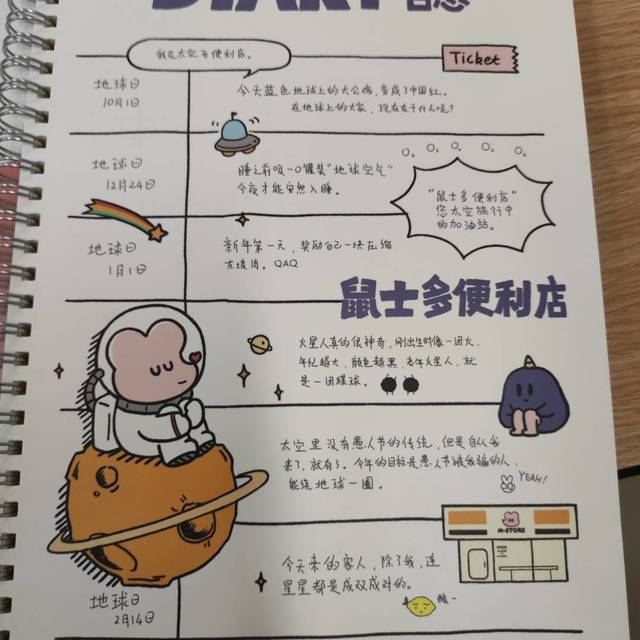 DIARY 日志
我在太空开便利店。
Ticket
地球日
10月1日
今天蓝色地球上的大公鸡，变成了中国红。
在地球上的大家，现在在干什么呢？
地球日
12月24日
睡之前吸一口罐装"地球空气"
今夜才能安然入睡。
"鼠士多便利店"
您太空旅行中
的加油站。
地球日
1月1日
新年第一天，奖励自己一块压缩
东坡肉。QAQ
鼠士多便利店
火星人真的很神奇，刚出生时像一团火，
年纪越大，颜色越黑，老年火星人，就
是一团煤球。
太空里没有愚人节的传统，但是自从我
来了，就有了。今年的目标是愚人节被我骗的人，
能绕地球一圈。
YEAH!
M-STORE
OPEN
今天来的客人，除了我，连
星星都是成双成对的。
酸~
地球日
2月14日